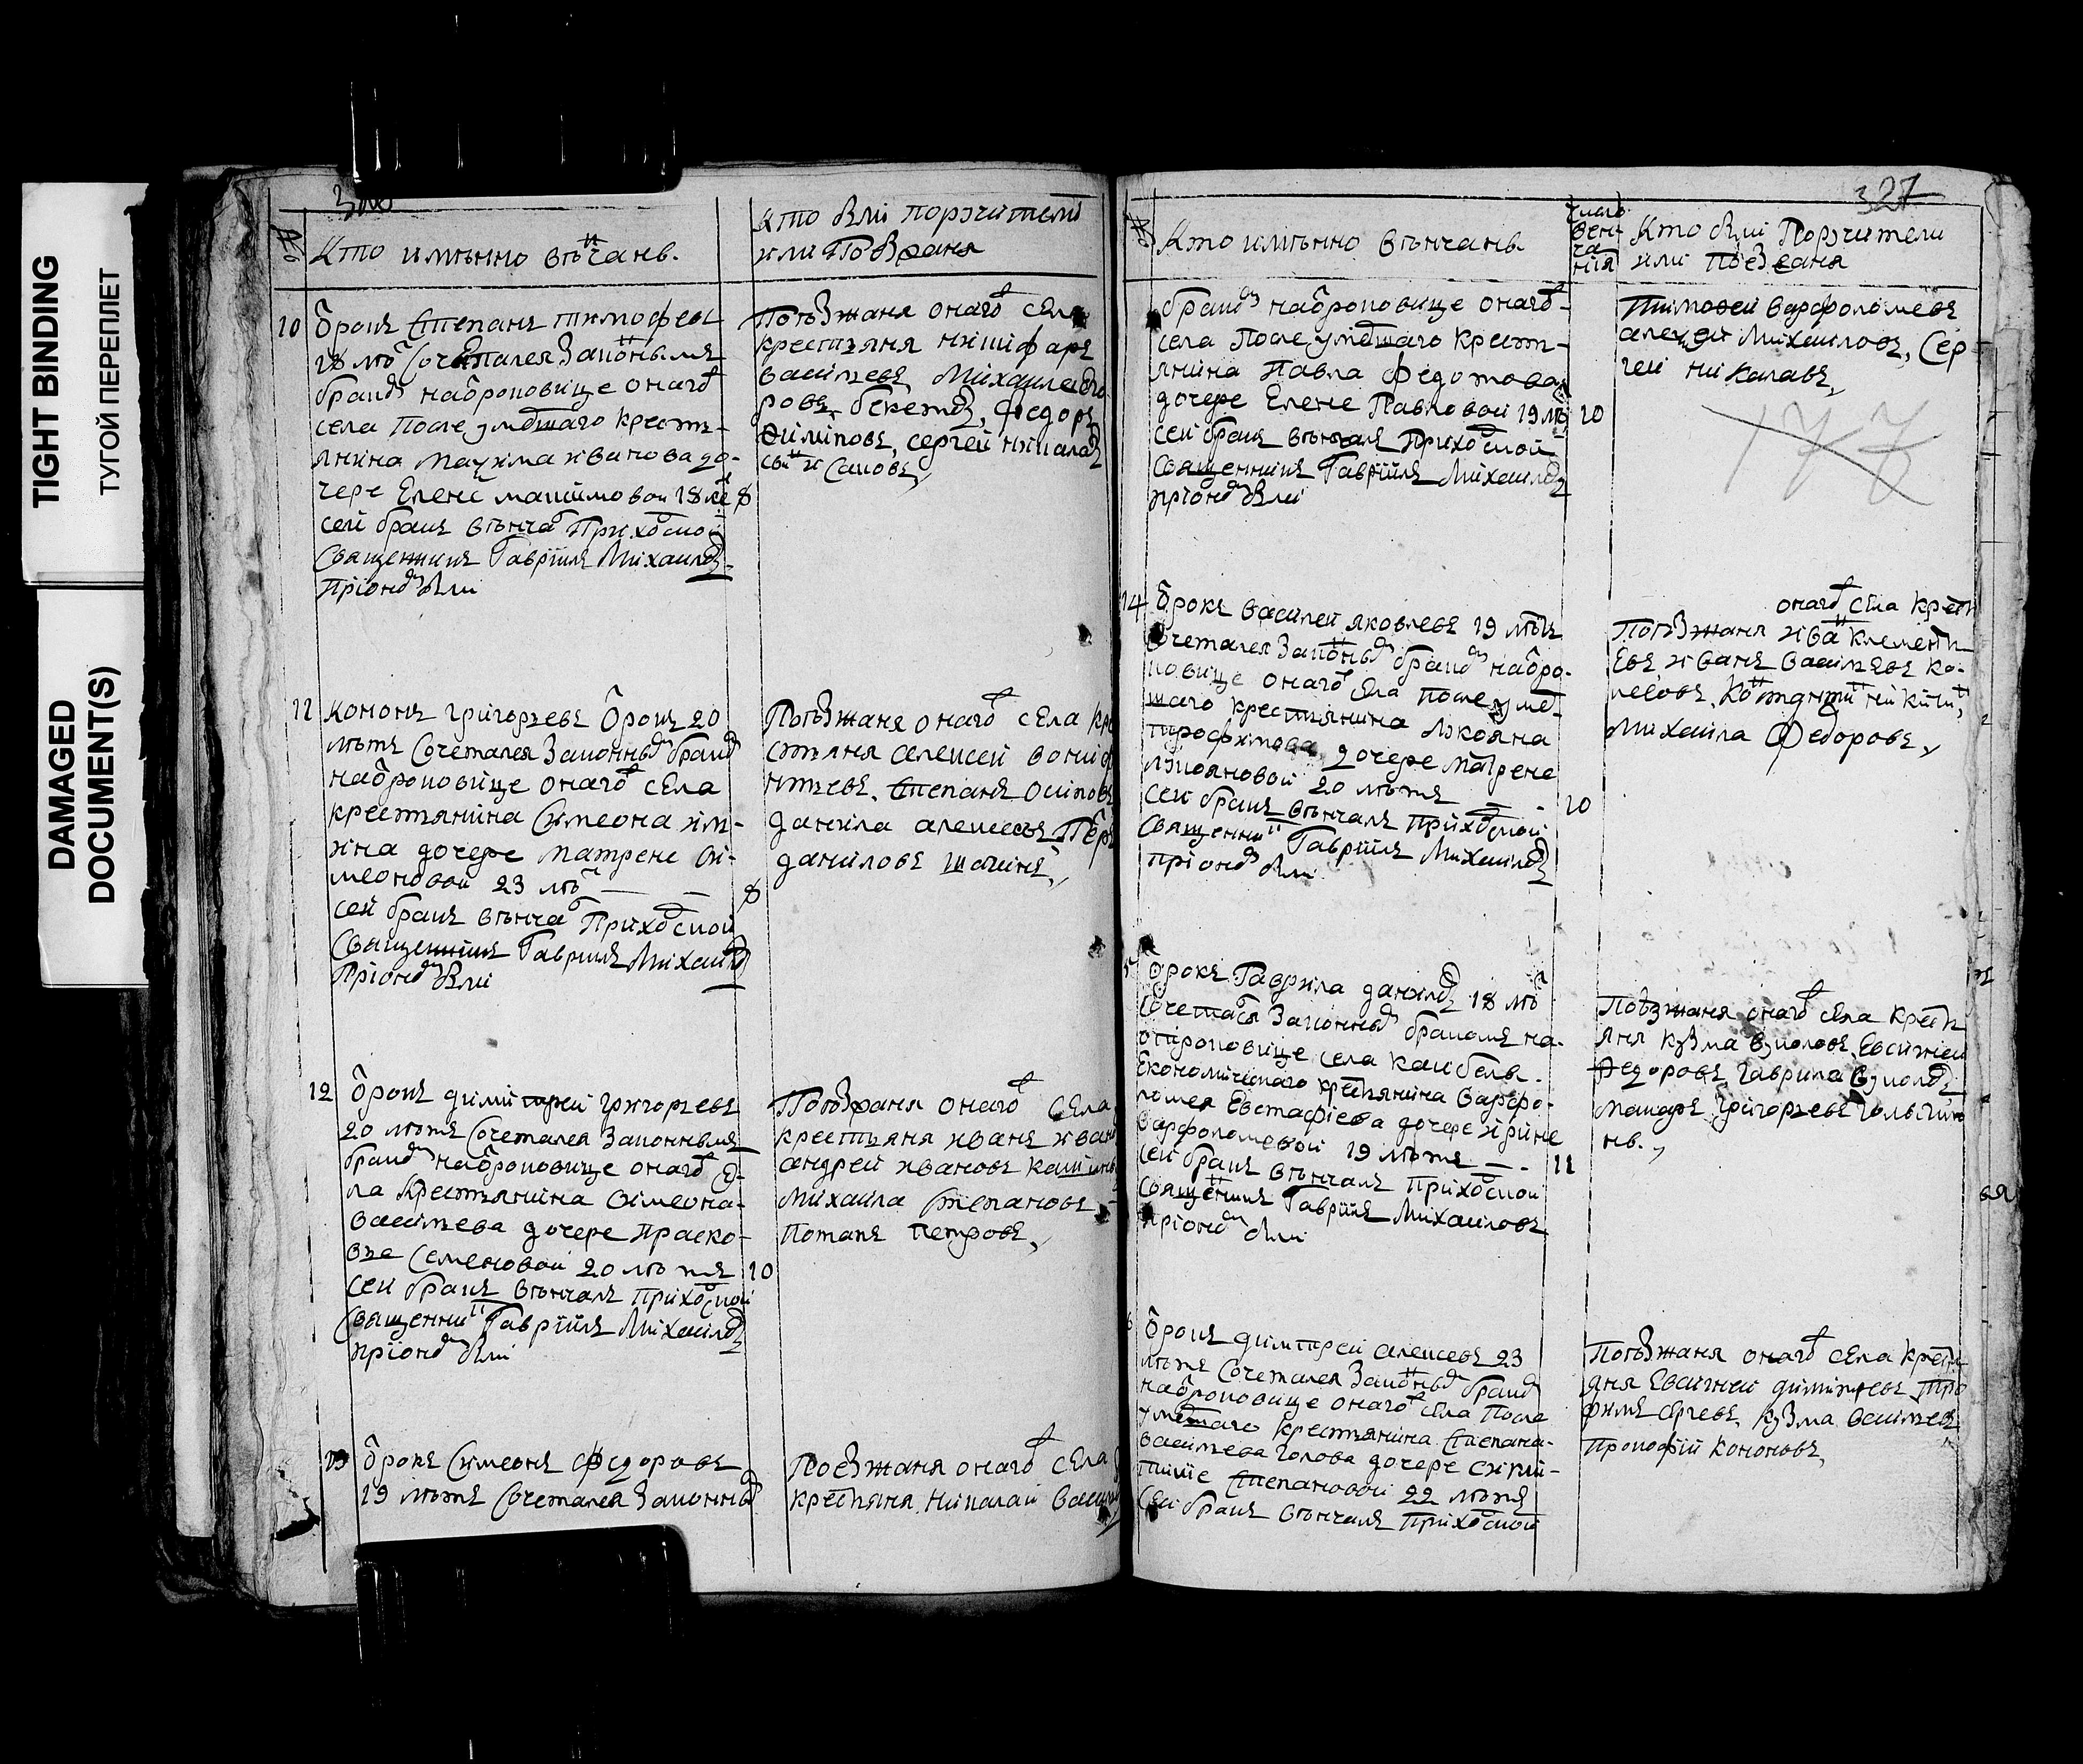 TIGHT BINDING
ТУГОЙ ПЕРЕПЛЕТ
DAMAGED
DOCUMENT(S)
№
Кто имѣнно вѣнчанъ.
кто были поручители
или Поѣзжаня
10
Отрокъ Степанъ тимофеевъ
18 лѣтъ Сочетался Законнымъ
бракомъ наотроковице онаго
села После умершаго крестъ-
янина Маѯима иванова до-
чере Елене маѯимовой 18 ле 8
сей бракъ вѣнчалъ Приходской
Священникъ Гаврїилъ Михаиловъ
Прїономъ были
Поѣзжаня онаго села
крестьяня никифаръ
васильевъ Михаила
Федоръ
Филиповъ, сергей никалаевъ
11
кононъ григорьевъ Отрокъ 20
лѣтъ Сочетался Законнымъ бракомъ
наотроковице онаго села
крестьянина Симеона иль-
ина дочере Матрене Си-
меоновой 23 лѣтъ 8
сей бракъ вѣнчалъ Приходской
Священникъ Гаврилъ Михаиловъ
Прїономъ были
Поѣзжаня онаго села кре
стьяня Степанъ Осиповъ
данила алексеевъ
даниловъ шагинъ
12
Отрокъ димитрей григорьевъ
20 лѣтъ Сочетался Законнымъ
бракомъ наотроковице онаго се-
ла Крестьянина Симеона
васильева дочере Праско-
вье Семеновой 20 лѣтъ 10
сей бракъ вѣнчалъ Приходской
Священникъ Гаврїилъ Михаиловъ
прїономъ были
Поѣзжаня онаго села
крестьяня иванъ иван
андрей ивановъ
Михаила степановъ
Потапъ петровъ
13
Отрокъ Симеонъ Федоровъ
19 лѣтъ Сочетался Законнымъ
Поѣзжаня онаго села
крестьяня Николай Васил
327
№
Кто имѣнно вѣнчанъ
число
вен-
ча
нїя
Кто были Поручители
или Поѣзжаня
бракомъ наотроковице онаго
села После умершаго крестъ-
янина Павла Федотова
дочере Елене Павловой 19 лѣ 10
сей бракъ вѣнчалъ Приходской
Священникъ Гаврїилъ Михаиловъ
прїономъ были
Тимофей варфоломеевъ
алеѯей Михаиловъ, Сер-
гей Николаевъ
177
14
Отрокъ василей яковлевъ 19 лѣтъ
Сочетался Законнымъ бракомъ наотро-
ковице онаго села после умер-
шаго крестьянина Лукояна
трофимова дочере Матрене
лукояновой 20 лѣтъ 10
сей бракъ вѣнчалъ Приходской
Священникъ Гаврїилъ Михаиловъ
прїономъ были
онаго села крестъ
Поѣзжаня иванъ клементь
евъ иванъ Васильевъ ко-
Михаила Федоровъ
Отрокъ Гаврила даниловъ 18 лѣтъ
Сочетался Законнымъ бракомъ на-
отроковице села каибелы
Економическаго крестьянина Варфо-
ломея Евстафїева дочере ирине
варфоломеевой 19 лѣтъ 11
сей бракъ вѣнчалъ Приходской
Священникъ Гаврїилъ Михаиловъ
прїономъ были
Поѣзжаня онаго села крестъ
яня кузма вуколовъ, Евсигней
Федоровъ, гаврила вуколовъ
макаръ григорьевъ
Отрокъ димитрей алексеевъ 23
лѣтъ Сочетался Законнымъ бракомъ
наотроковице онаго села После
умершаго крестьянина Степана
васильева голова дочере
Степановой 22 лѣтъ
сей бракъ вѣнчалъ приходской
Поѣзжаня онаго села крестъ
яня Евсигней димитревъ тро
фимъ сергевъ, кузма васильевъ
Прокофїй Кононовъ